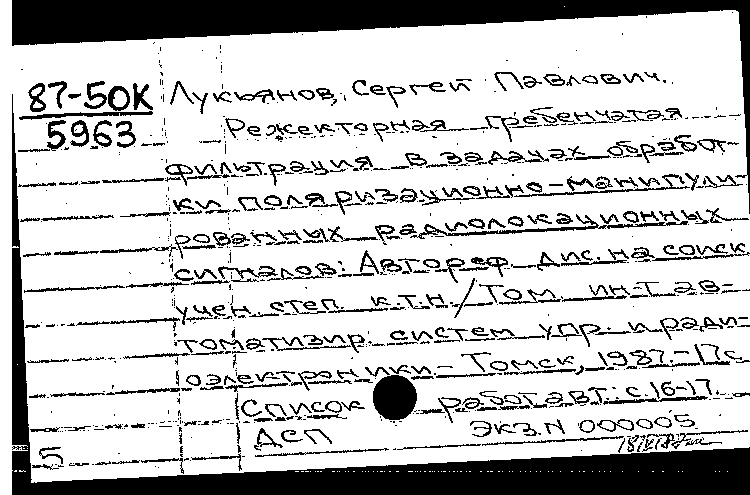 87-5OK
5963
Лукьянов, Сергей Павлович.
Режекторная гребенчатая
фильтрация в задачах обработ-
ки поляризационно-манипули-
рованных радиолокационных
сигналов: Автореф дис. на соиск
учен. степ. к.т.н./Том. ин-т ав-
томатизир. систем упр. и ради-
оэлектроники - Томск, 1987.-17с.
Список работ авт.: с.16-17.
ДСП Экз.N 000005
5